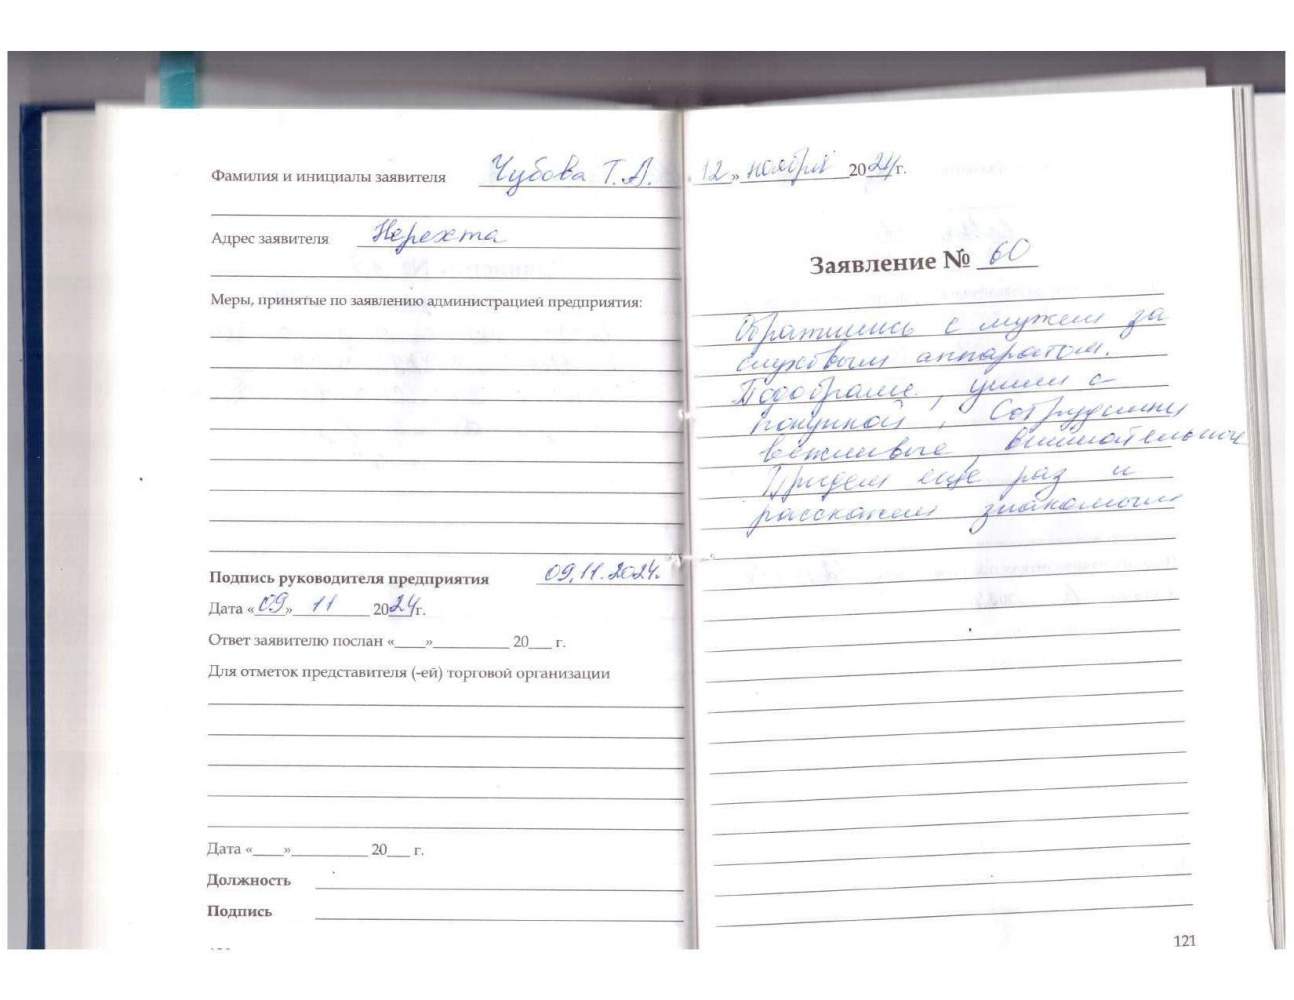 Фамилия и инициалы заявителя Чубова Т.А.
Адрес заявителя Нерехта
Меры, принятые по заявлению администрацией предприятия:
Подпись руководителя предприятия 09.11.2024г.
Дата «09» 11 2024г.
Ответ заявителю послан «___»__________ 20___ г.
Для отметок представителя (-ей) торговой организации
Дата «____»__________ 20___ г.
Должность
Подпись
12 » ноября 2024г.
Заявление № 60
Обратились с мужем за
слуховым аппаратом.
Подобрали, ушли с
покупкой, Сотрудники
вежливые, внимательные
Придем еще раз и
расскажем знакомым
121